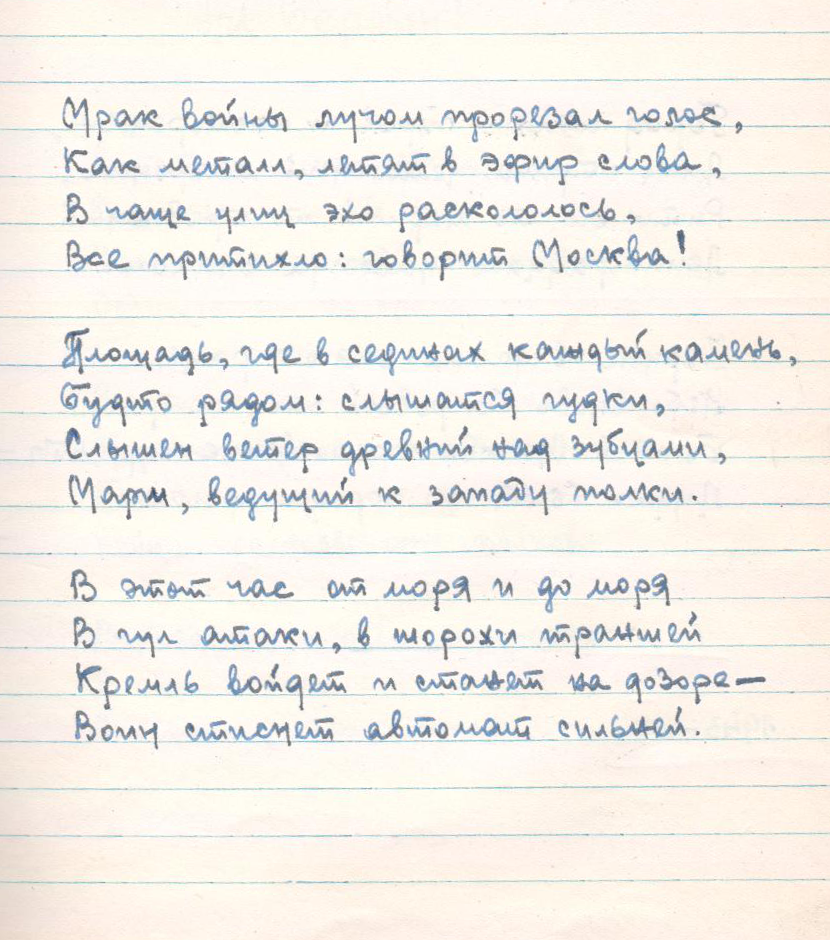 Мрак войны лучом прорезал голос,
Как металл, летят в эфир слова,
В чаще улиц эхо раскололось,
Все притихло: говорит Москва!
Площадь, где в сединах каждый камень,
Будто рядом: слышатся гудки,
Слышен ветер древний над зубцами,
Марш, ведущий к западу полки.
В этот час от моря и до моря
В гул атаки, в шорохи траншей
Кремль войдет и станет на дозоре—
Воин стиснет автомат сильней.